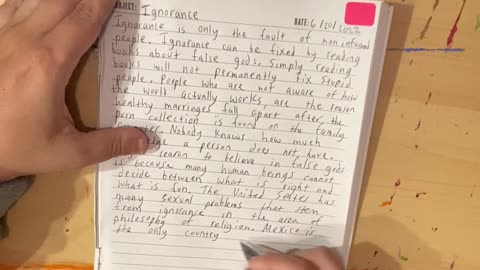 SUBJECT: Ignorance DATE: 6/20/2022
Ignorance is only the fault of non informed
people. Ignorance can be fixed by reading
books about false gods. Simply reading
books will not permanently fix stupid
people. People who are not aware of how
the world actually works, are the reason
healthy marriages fall apart after the
porn collection is found on the family
computer. Nobody knows how much
a person does not have.
reason to believe in false gods
is because many human beings cannot
decide between what is right and
what is fun. The United States has
many sexual problems that stem
from ignorance in the area of
philosophy of religion. Mexico is
the only country